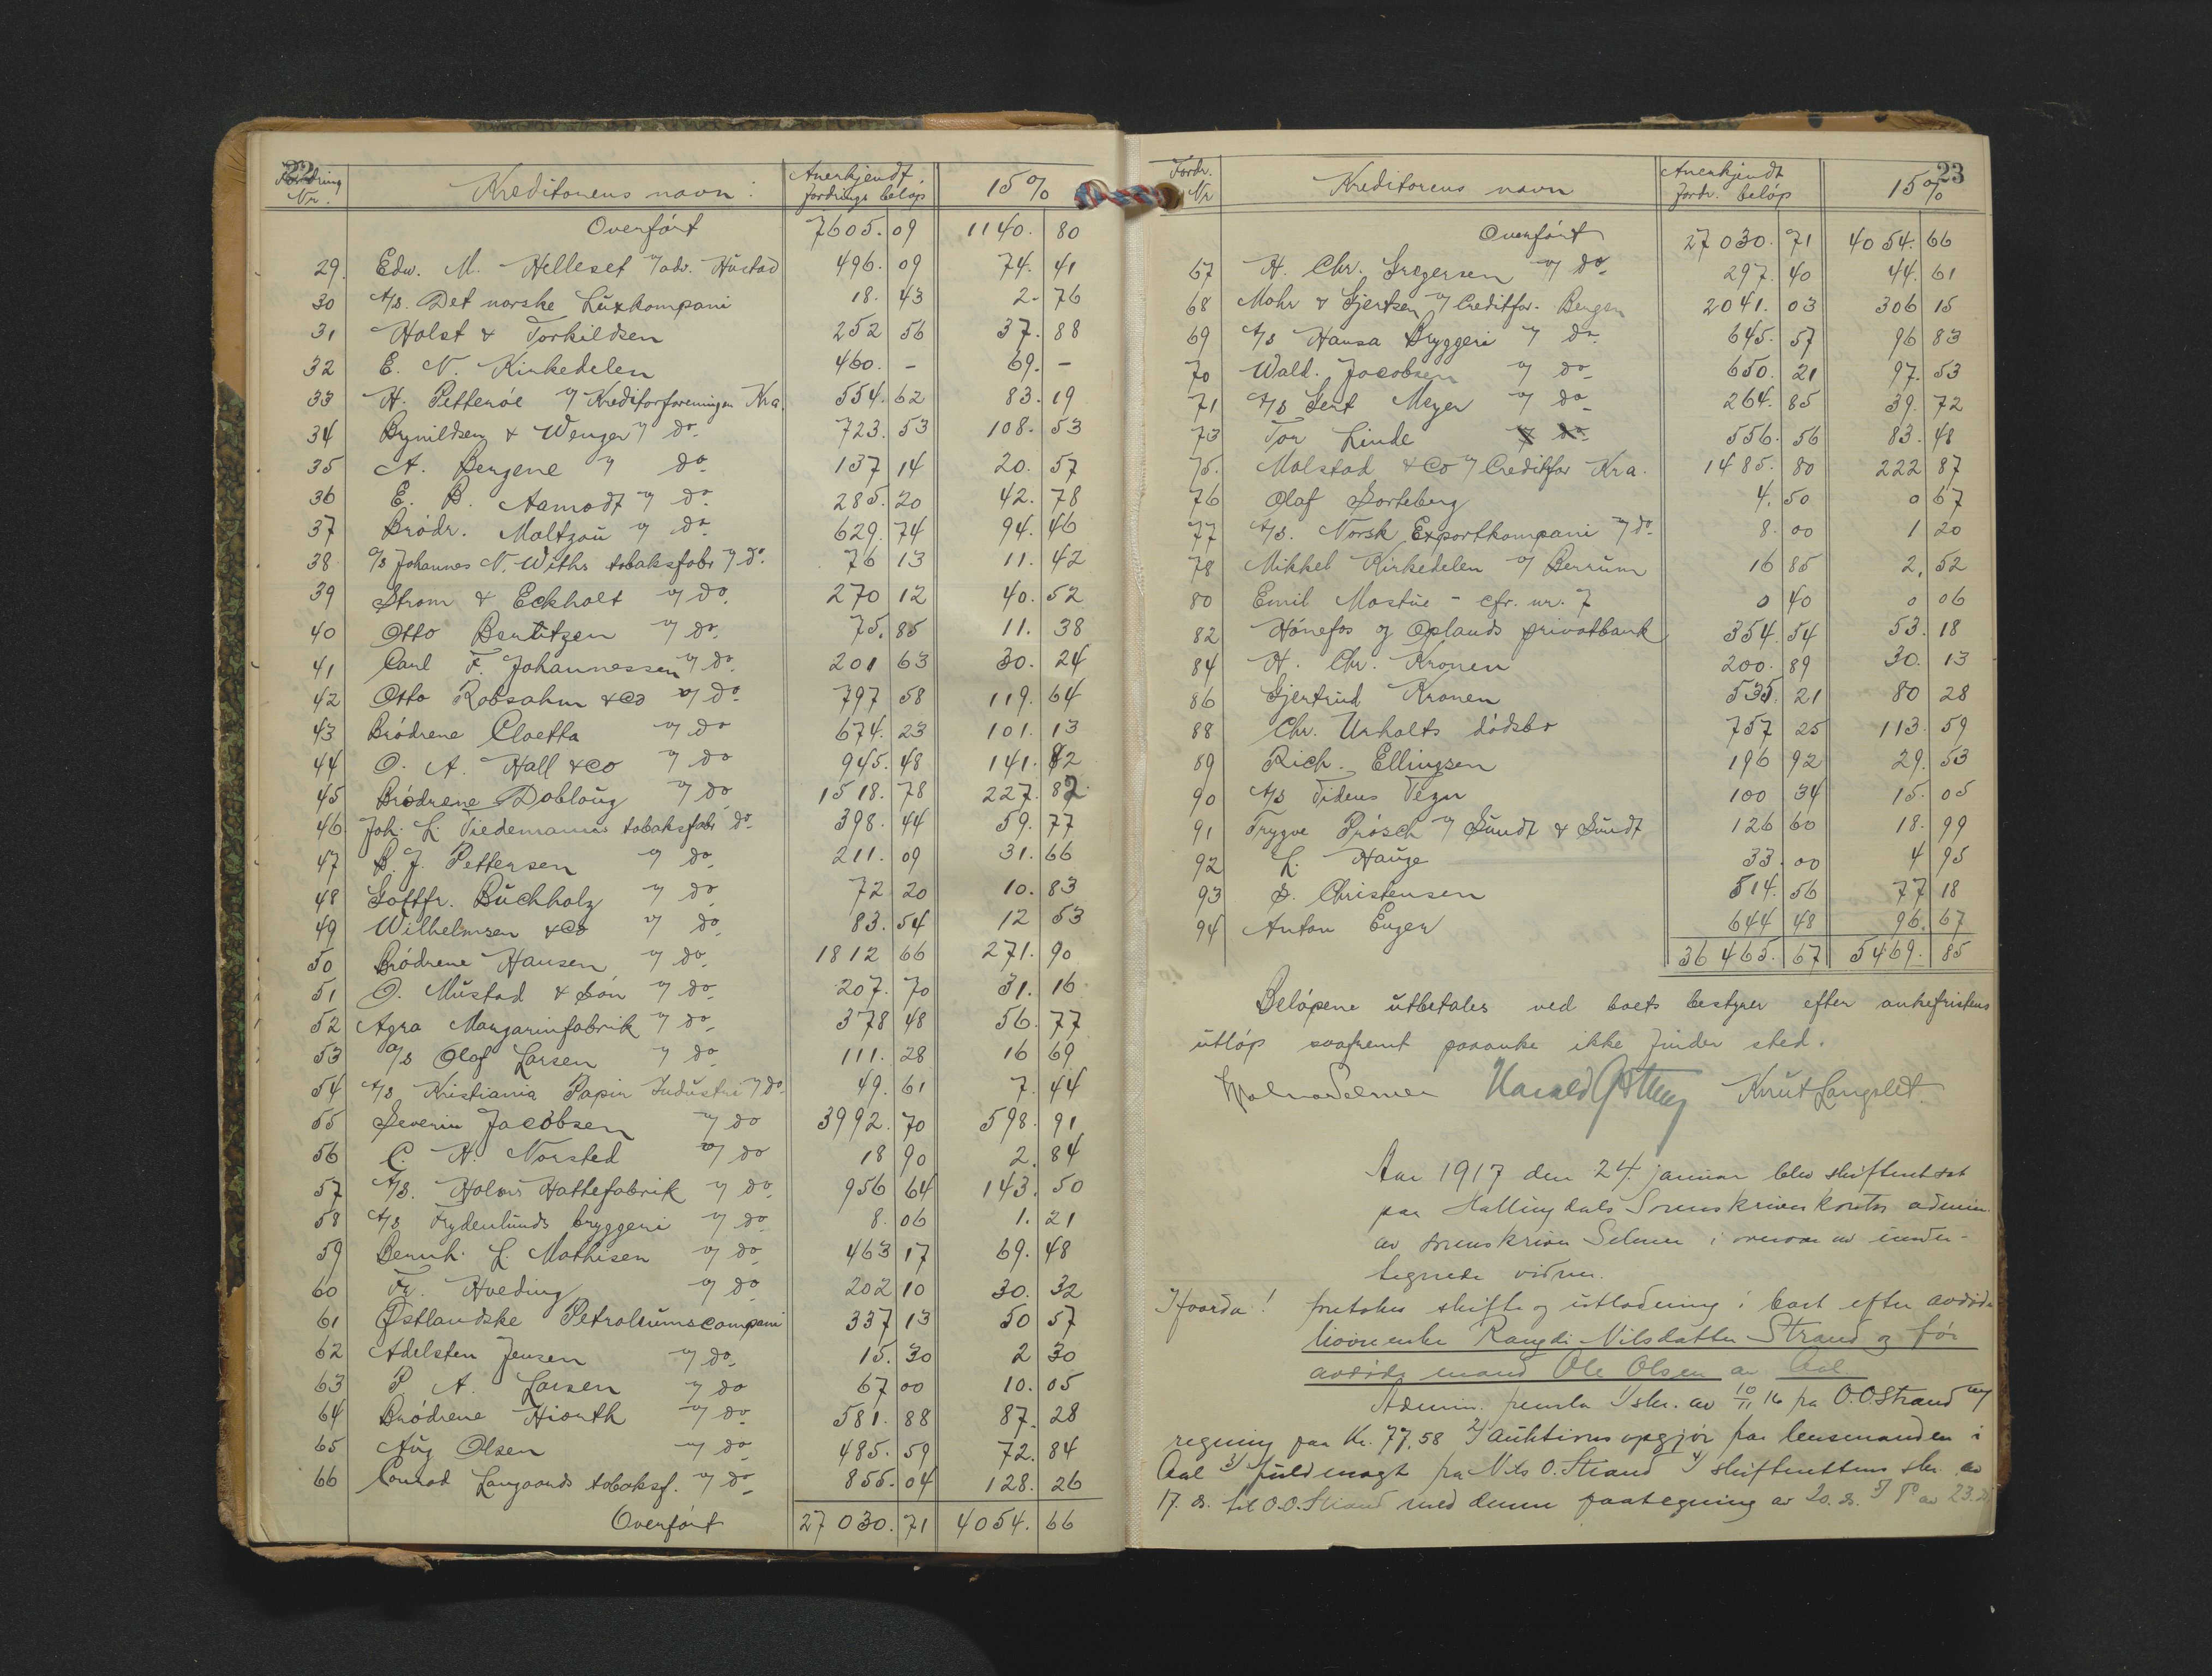 22
Fordring Nr. Kreditorens navn: Anerkjendt fordrings beløp 15%
Overført 7605.09 1140.80
29. Edw. M. Helleset v/ adv. Hustad 496.09 74.41
30 A/S. Det norske Luxkompani 18.43 2.76
31 Holst & Torkildsen 252 56 37.88
32 E. N. Kirkedelen 460. - 69. -
33 H. Petterøe v/ Kreditorforeningen Kra. 554.62 83.19
34 Brynildsen & Wenger v/ do. 723.53 108.53
35 A. Bergene v/ do. 137 14 20.57
36 E. B. Aamodt v/ do. 285.20 42.78
37 Brødr. Maltzau v/ do. 629.74 94.46
38 A/S Johannes N. Withs tobaksfabr v/ do. 76 13 11.42
39 Strøm & Eckholt v/ do. 270 12 40.52
40 Otto Bentzen v/ do. 75.85 11.38
41 Carl F. Johannessen v/ do. 201 63 30.24
42 Otto Robsahm & Co v/ do. 797 58 119.64
43 Brødrene Cloetta v/ do 674.23 101.13
44 O. A. Hall & Co v/ do 945.48 141.82
45 Brødrene Dobloug v/ do 1518.78 227.82
46 Joh. L. Tiedemanns tobaksfabr do. 398.44 59.77
47 B. J. Pettersen v/ do. 211.09 31.66
48 Gottfr. Buchholz v/ do. 72 20 10.83
49 Wilhelmsen & Co v/ do. 83.54 12 53
50 Brødrene Hansen v/ do. 1812 66 271.90
51 O. Mustad & Søn v/ do. 207.70 31.16
52 Agra Margarinfabrik v/ do. 378 48 56.77
53 A/S Olaf Larsen v/ do. 111.28 16 69
54 A/S Kristiania Papir Industri v/ do. 49.61 7.44
55 Severin Jacobsen v/ do 3992.70 598.91
56 C. H. Norsted v/ do 18 90 2.84
57 A/S. Holms Hattefabrik v/ do. 956 64 143.50
58 A/S Frydenlunds bryggeri v/ do. 8.06 1.21
59 Bernh. L. Mathisen v/ do. 463 17 69.48
60 Fr. Hveding v/ do. 202 10 30.32
61 Østlandske Petroleumscompani 337 13 50 57
62 Adelsten Jensen v/ do. 15.30 2 30
63 P. A. Larsen v/ do 67 00 10.05
64 Brødrene Hiorth v/ do. 581.88 87.28
65 Aug Olsen v/ do. 485.59 72.84
66 Conrad Langaards tobaksf. v/ do. 855.04 128.26
Overført 27 030.71 4054.66
23
Fordr. Nr Kreditorens navn Anerkjendt fordr. beløp 15%
Overført 27 030.71 4054.66
67 H. Chr. Gregersen v/ do. 297.40 44.61
68 Mohr & Gjertsen v/ Creditfor. Bergen 2041.03 306 15
69 A/S Hansa Bryggeri v/ do. 645.57 96 83
70 Wald. Jacobsen v/ do. 650.21 97.53
71 A/S Gert Meyer v/ do. 264.85 39.72
73 Tor Linde v/ do. 556.56 83.48
75. Molstad & Co v/ Creditfor Kra. 1485.80 222 87
76 Olaf Gorteberg 4.50 0 67
77 A/S. Norsk Exportkompani v/ do. 8.00 1 20
78 Mikkel Kirkedelen v/ Berrum 16 85 2.52
80 Emil Mostue - cfr. nr. 7 0 40 0 06
82 Hønefos og Oplands privatbank 354.54 53.18
84 H. Chr. Kronen 200.89 30.13
86 Gjertrud Kronen 535.21 80 28
88 Chr. Urholts dødsbo 757 25 113.59
89 Rich. Ellingsen 196 92 29.53
90 A/S Tidens Tegn 100 34 15.05
91 Trygve Prøsch v/ Sundt & Sundt 126 60 18.99
92 L. Hauge 33.00 4 95
93 S. Christensen 514.56 77 18
94 Anton Enger 644 48 96.67
36 465.67 5469.85
Beløpene utbetales ved boets bestyrer efter ankefristens
utløp saafremt paaanke ikke finder sted.
Selmer Harald Knut Langslet.
Aar 1917 den 24. januar blev skifteret sat
paa Hallingdals Sorenskriverkontor admin.
av sorenskriver Selmer i overvær av under-
tegnede vidner.
Hvorda! foretokes skifte og utlodning i boet efter avdøde
Ragdi Nilsdatter Strand og før
avdøde mand Ole Olsen av Aal
Admin. fremla 1/ skr. av 10/11 16 fra O. O. Strand
regning paa Kr. 77,58 2/ Auktionsopgjør fra lensmanden i
Aal 3/ fuldmagt fra Nils O. Strand 4/ skifterettens skr. av
17. ds. til O. O. Strand med dennes paategning av 20. ds. 5/ av 23. ds